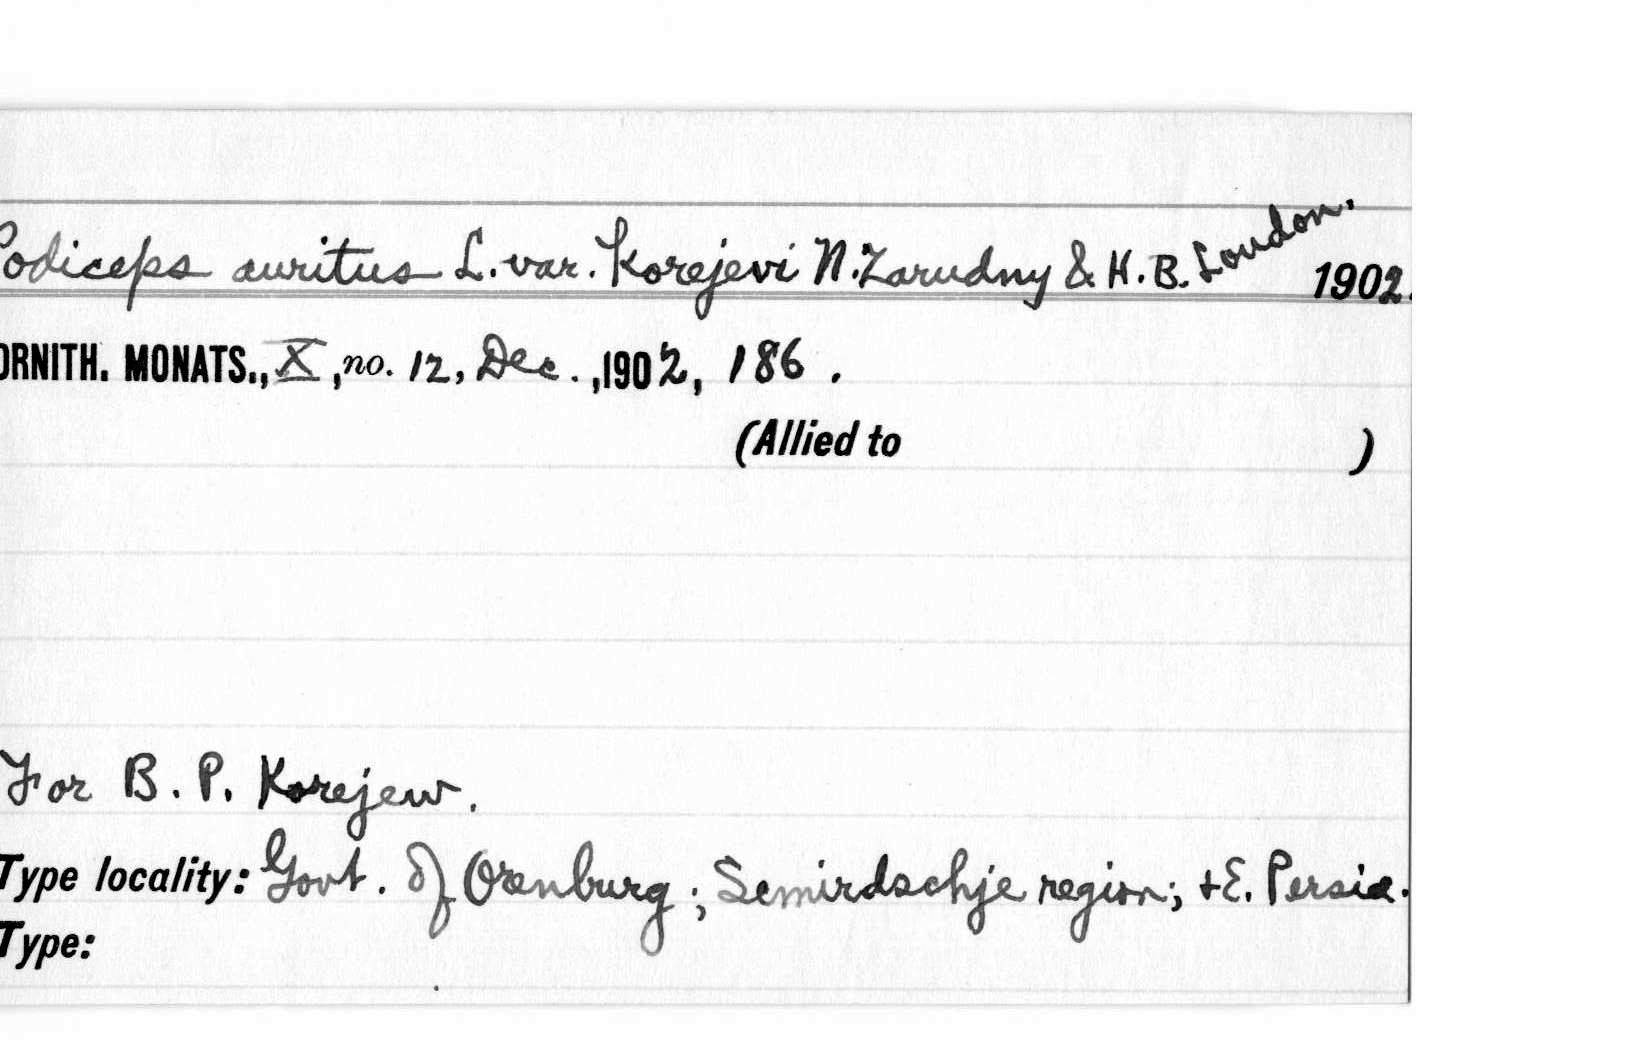 Podiceps auritus L. var. Korejevi N. Zarudny & H. B. Loudon. 1902.
ORNITH. MONATS., X, no. 12, Dec. ,1902, 186.
(Allied to )
For B. P. Korejew.
Type locality: Govt. of Orenburg; Semirdschje region; + E. Persia.
Type: